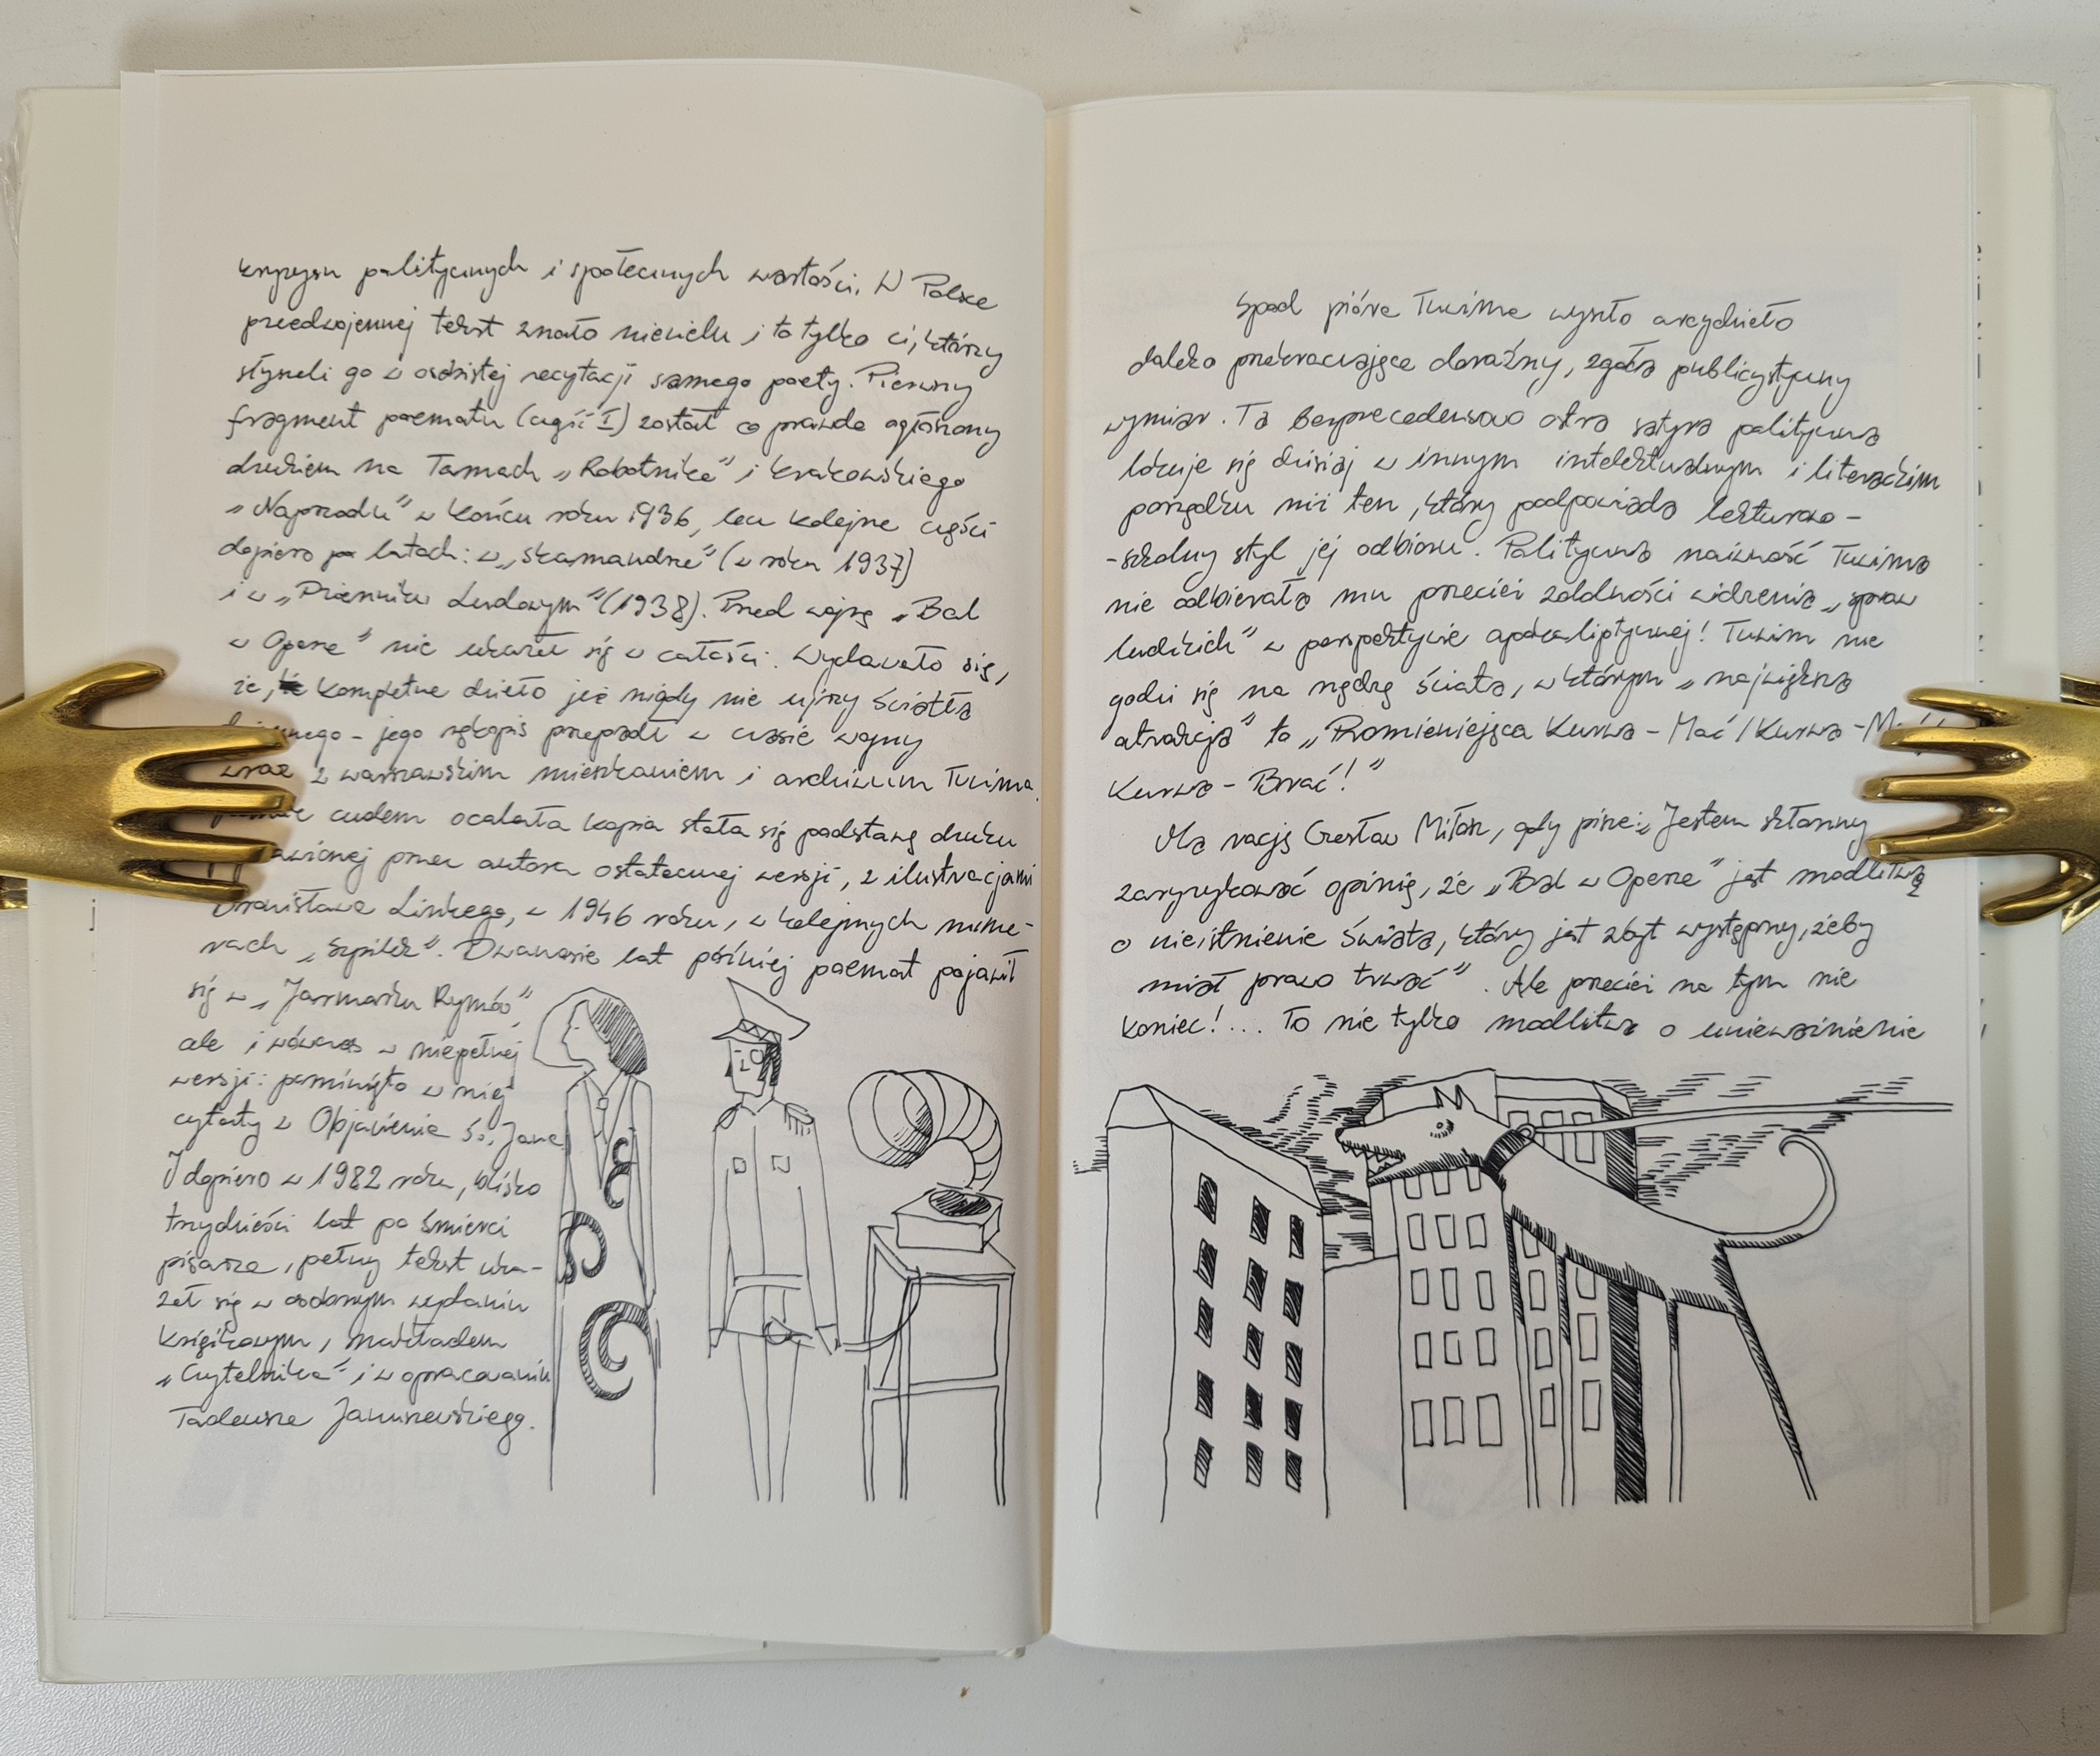 kryzysu politycznych i społecznych wartości. W Polsce
przedwojennej tekst znało niewielu i to tylko ci, którzy
słyszeli go w osobistej recytacji samego poety. Pierwszy
fragment poematu (część I) został co prawda ogłoszony
drukiem na łamach „Robotnika” i krakowskiego
„Naprzodu” w końcu roku 1936, lecz kolejne części
dopiero po latach: w „Skamandrze” (w roku 1937)
i w „Dzienniku Ludowym” (1938). Przed wojną „Bal
w Operze” nie ukazał się w całości. Wydawało się,
że, kompletne dzieło już nigdy nie ujrzy światła
- jego rękopis przepadł w czasie wojny
wraz z warszawskim mieszkaniem i archiwum Tuwima.
cudem ocalała kopia stała się podstawą druku
przez autora ostatecznej wersji, z ilustracjami
Bronisława Linkego, w 1946 roku, w kolejnych nume-
rach „Szpilek”. Dwanaście lat później poemat pojawił
się w „Jarmarku Rymów”,
ale i wówczas w niepełnej
wersji: pominięto w niej
cytaty z Objawienia Św. Jana.
I dopiero w 1982 roku, blisko
trzydzieści lat po śmierci
pisarza, pełny tekst uka-
zał się w osobnym wydaniu
książkowym, nakładem
„Czytelnika” i w opracowaniu
Tadeusza Januszewskiego.
Spod pióra Tuwima wyszło arcydzieło
daleko przekraczające doraźny, zgoła publicystyczny
wymiar. Ta bezprecedensowo ostra satyra polityczna
lokuje się dzisiaj w innym intelektualnym i literackim
porządku niż ten, który podpowiada lekturowo-
-szkolny styl jej odbioru. Polityczna naiwność Tuwima
nie odbierała mu przecież zdolności widzenia „spraw
ludzkich” w perspektywie apokaliptycznej! Tuwim nie
godzi się na nędzę świata, w którym „największa
atrakcja” to „Promieniejąca Kurwa-Mać / Kurwa-Mać
Kurwa-Brać!”
Ma rację Czesław Miłosz, gdy pisze: „Jestem skłonny
zaryzykować opinię, że „Bal w Operze” jest modlitwą
o nieistnienie świata, który jest zbyt występny, żeby
miał prawo trwać”. Ale przecież na tym nie
koniec!... To nie tylko modlitwa o unieważnienie